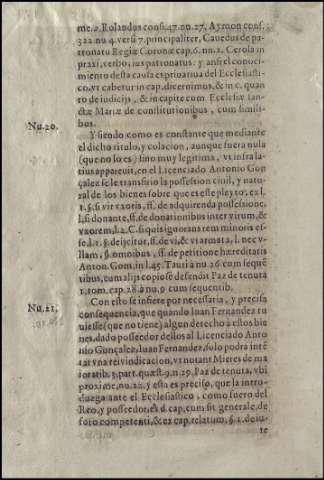 me. 2. Rolandus cons. 47. nu. 27, Aymon cons.
322 nu 4. vers. 7. principaliter, Caue dus de pa-
tronatu Regiæ Coronæ cap. 6. nu. 2. Cerola in
praxi, verbo, ius patronatus: y ansi el conoci-
miento desta causa es priuatiua del Ecclesiasti-
co, vt cabetur in cap. diceroimus, & in c. quan
to de iudicijs, & in capite cum Ecclesiæ sanc-
tæ Mariæ de constitutionibus, cum simili-
bus.
Nu. 20.
Y siendo como es constante que mediante
el dicho titulo, y colacion, aunque fuera nula
(que no lo es) sino muy legitima, vt infra la-
tius apareuit, en el Licenciado Antonio Gon
çalez se le transfirio la possession ciuil, y natu-
ral de los bienes sobre que es este pleyto, ex l.
1. §. si vir vxoris, ff. de adquirenda possessione,
l. si donante, ff. de donationibus inter virum, &
vxorem, l. 2. C. si quis ignorans rem minoris es-
se, l. 1. §. deijcitur, ff. de vi, & vi armata, l. nec v-
llam, §. omnibus, ff. de petitione hæreditatis
Anton. Gom. in l. 45. Tauri à nu 26 cum sequẽ
tibus, cum alijs copiose defendit Paz de tenuta
1. tom. cap. 28. à nu. 9 cum sequentib.
Nu. 21.
Con esto se infiere por necessaria, y precisa
consequencia, que quando Iuan Fernandez tu
uiesse (que no tiene) algun derecho a estos bie
nes, dado possedor dellos al Licenciado Anto
nio Gonçalez, Iuan Fernandez, solo podra inté
tar vna reiuindicacion, vt notant Mieres de ma
ioratib. 3. part. quæst. 9. n. 29. Paz de tenuta, vbi
proxime, nu. 22. y esta es preciso, que la intro-
duzga ante el Ecclesiastico, como fuero del
Reo, y possedor, ex d. cap. cum sit generale, de
foro competenti, & ex cap. relatum, §. 1. de iu-
re